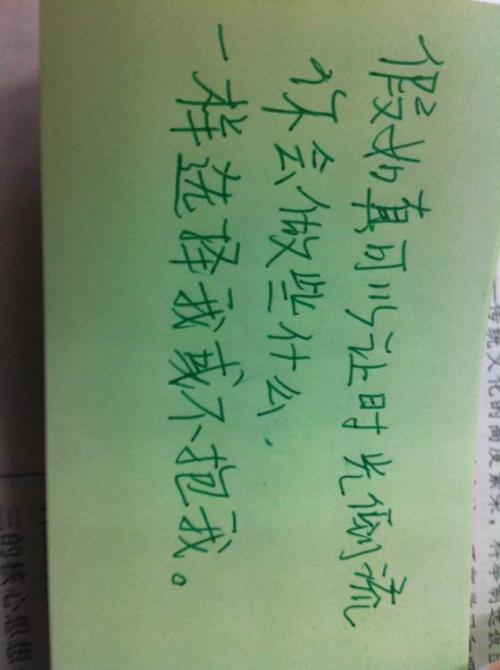 假如真可以让时光倒流
你会做些什么.
一样选择我或不抱我。
三的核心思想